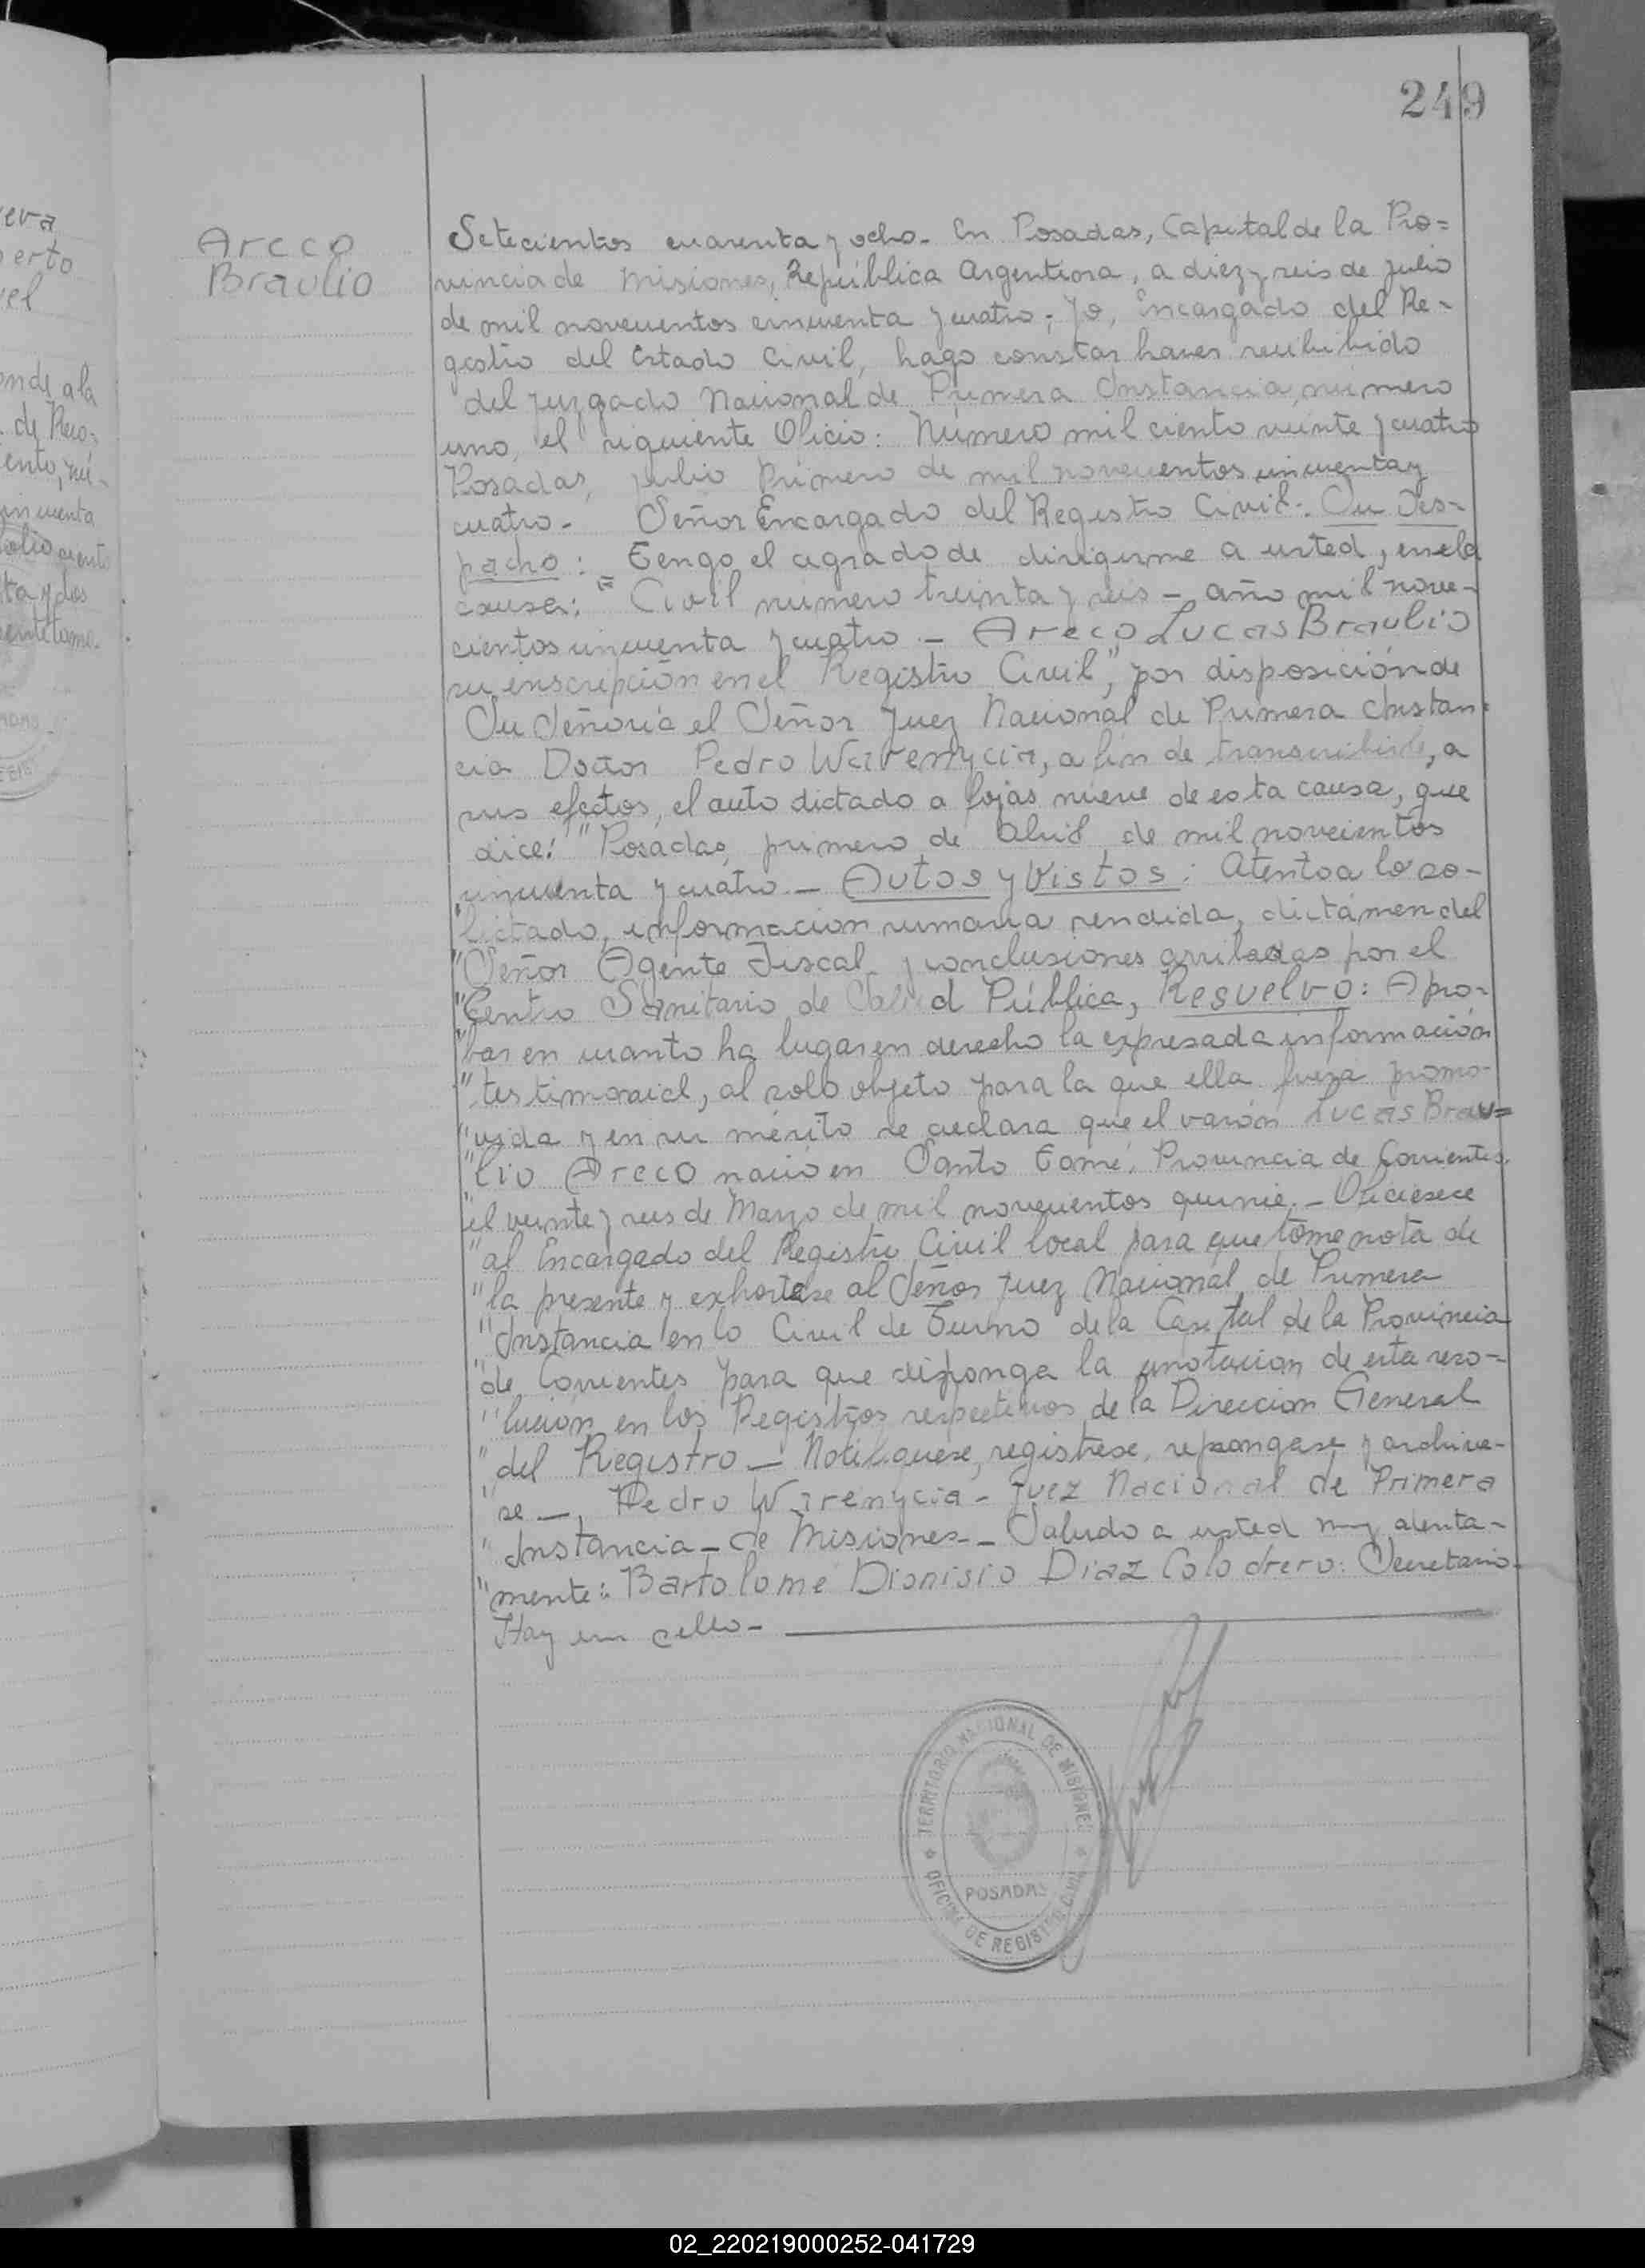 249
Areco
Braulio
Setecientos cuarenta y ocho. En Posadas, Capital de la Pro=
vincia de Misiones, República Argentina, a diez y seis de julio
de mil novecientos cincuenta y cuatro; yo, Encargado del Re-
gistro del Estado Civil, hago constar haver recibibido
del juzgado Nacional de Primera Instancia, número
uno, el siguiente Oficio: Número mil ciento veinte y cuatro
Posadas, julio Primero de mil novecientos cincuenta y
cuatro. Señor Encargado del Registro Civil. Su Des-
pacho: Tengo el agrado de dirigirme a usted, en la
causa: "Civil numero treinta y seis - año mil nove-
cientos cincuenta y cuatro - Areco Lucas Braulio
su inscripción en el Registro Civil", por disposición de
Su Señoría el Señor Juez Nacional de Primera Instan-
cia Doctor Pedro Warenycia, a fin de transcribirle, a
sus efectos, el auto dictado a fojas nueve de esta causa, que
dice: "Posadas, primero de abril de mil novecientos
cincuenta y cuatro. - Autos y Vistos: Atento a lo so-
licitado, información sumaria rendida, dictámen del
"Señor Agente Fiscal y conclusiones arribadas por el
"Centro Sanitario de Salud Pública, Resuelvo: Apro-
"bar en cuanto ha lugar en derecho la expresada información
"testimonial, al solo objeto para la que ella fuera promo-
"vida y en su mérito se declara que el varón Lucas Brau=
"lio Areco nació en Santo Tomé, Provincia de Corrientes,
"el veinte y seis de Marzo de mil novecientos quince. - Oficiesece
"al Encargado del Registro Civil local para que tome nota de
"la presente y exhortese al Señor Juez Nacional de Primera
"Instancia en lo Civil de Turno de la Capital de la Provincia
"de Corrientes para que disponga la anotacion de esta reso-
"lución en los Registros respectivos de la Direccion General
"del Registro - Notifiquese, registrese, repongase y archive-
"se -, Pedro Warenycia - Juez Nacional de Primera
"Instancia - de Misiones - Saludo a usted muy atenta-
"mente: Bartolomé Dionisio Diaz Colodrero: Secretario -
Hay un sello -
TERRITORIO NACIONAL DE MISIONES
POSADAS
OFICINA DE REGISTRO CIVIL
02_220219000252-041729